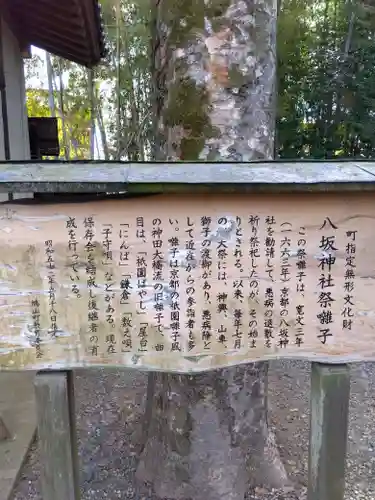 町指定無形文化財
八坂神社祭囃子
この祭囃子は、寛文三年
(一六六三年)京都の八坂神
社を勧請して、悪病の退散を
祈り祭祀したのが、その始ま
りとされる。以来、毎年七月
の大祭には、神輿、山車、
獅子の渡御があり、悪病除と
して近在からの参拝者も多
い。囃子は京都の祇園囃子風
の神田大幡流の旧囃子で、曲
目は、「祇園ばやし」「屋台」
「にんば」「鎌倉」「数え唄」
「子守唄」などがある。現在
保存会を結成し後継者の育
成を行っている。
昭和五七年五月十八日指定
鳩山町教育委員会